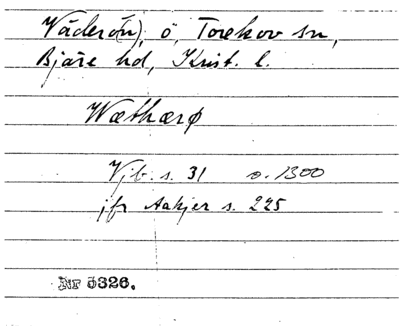 Väderön), ö, Torekov sn,
Bjäre hd, Krist. l.
Wæthærø
Vjb. s. 31 o. 1300
jfr Aakjer s. 225
Nr 5326.